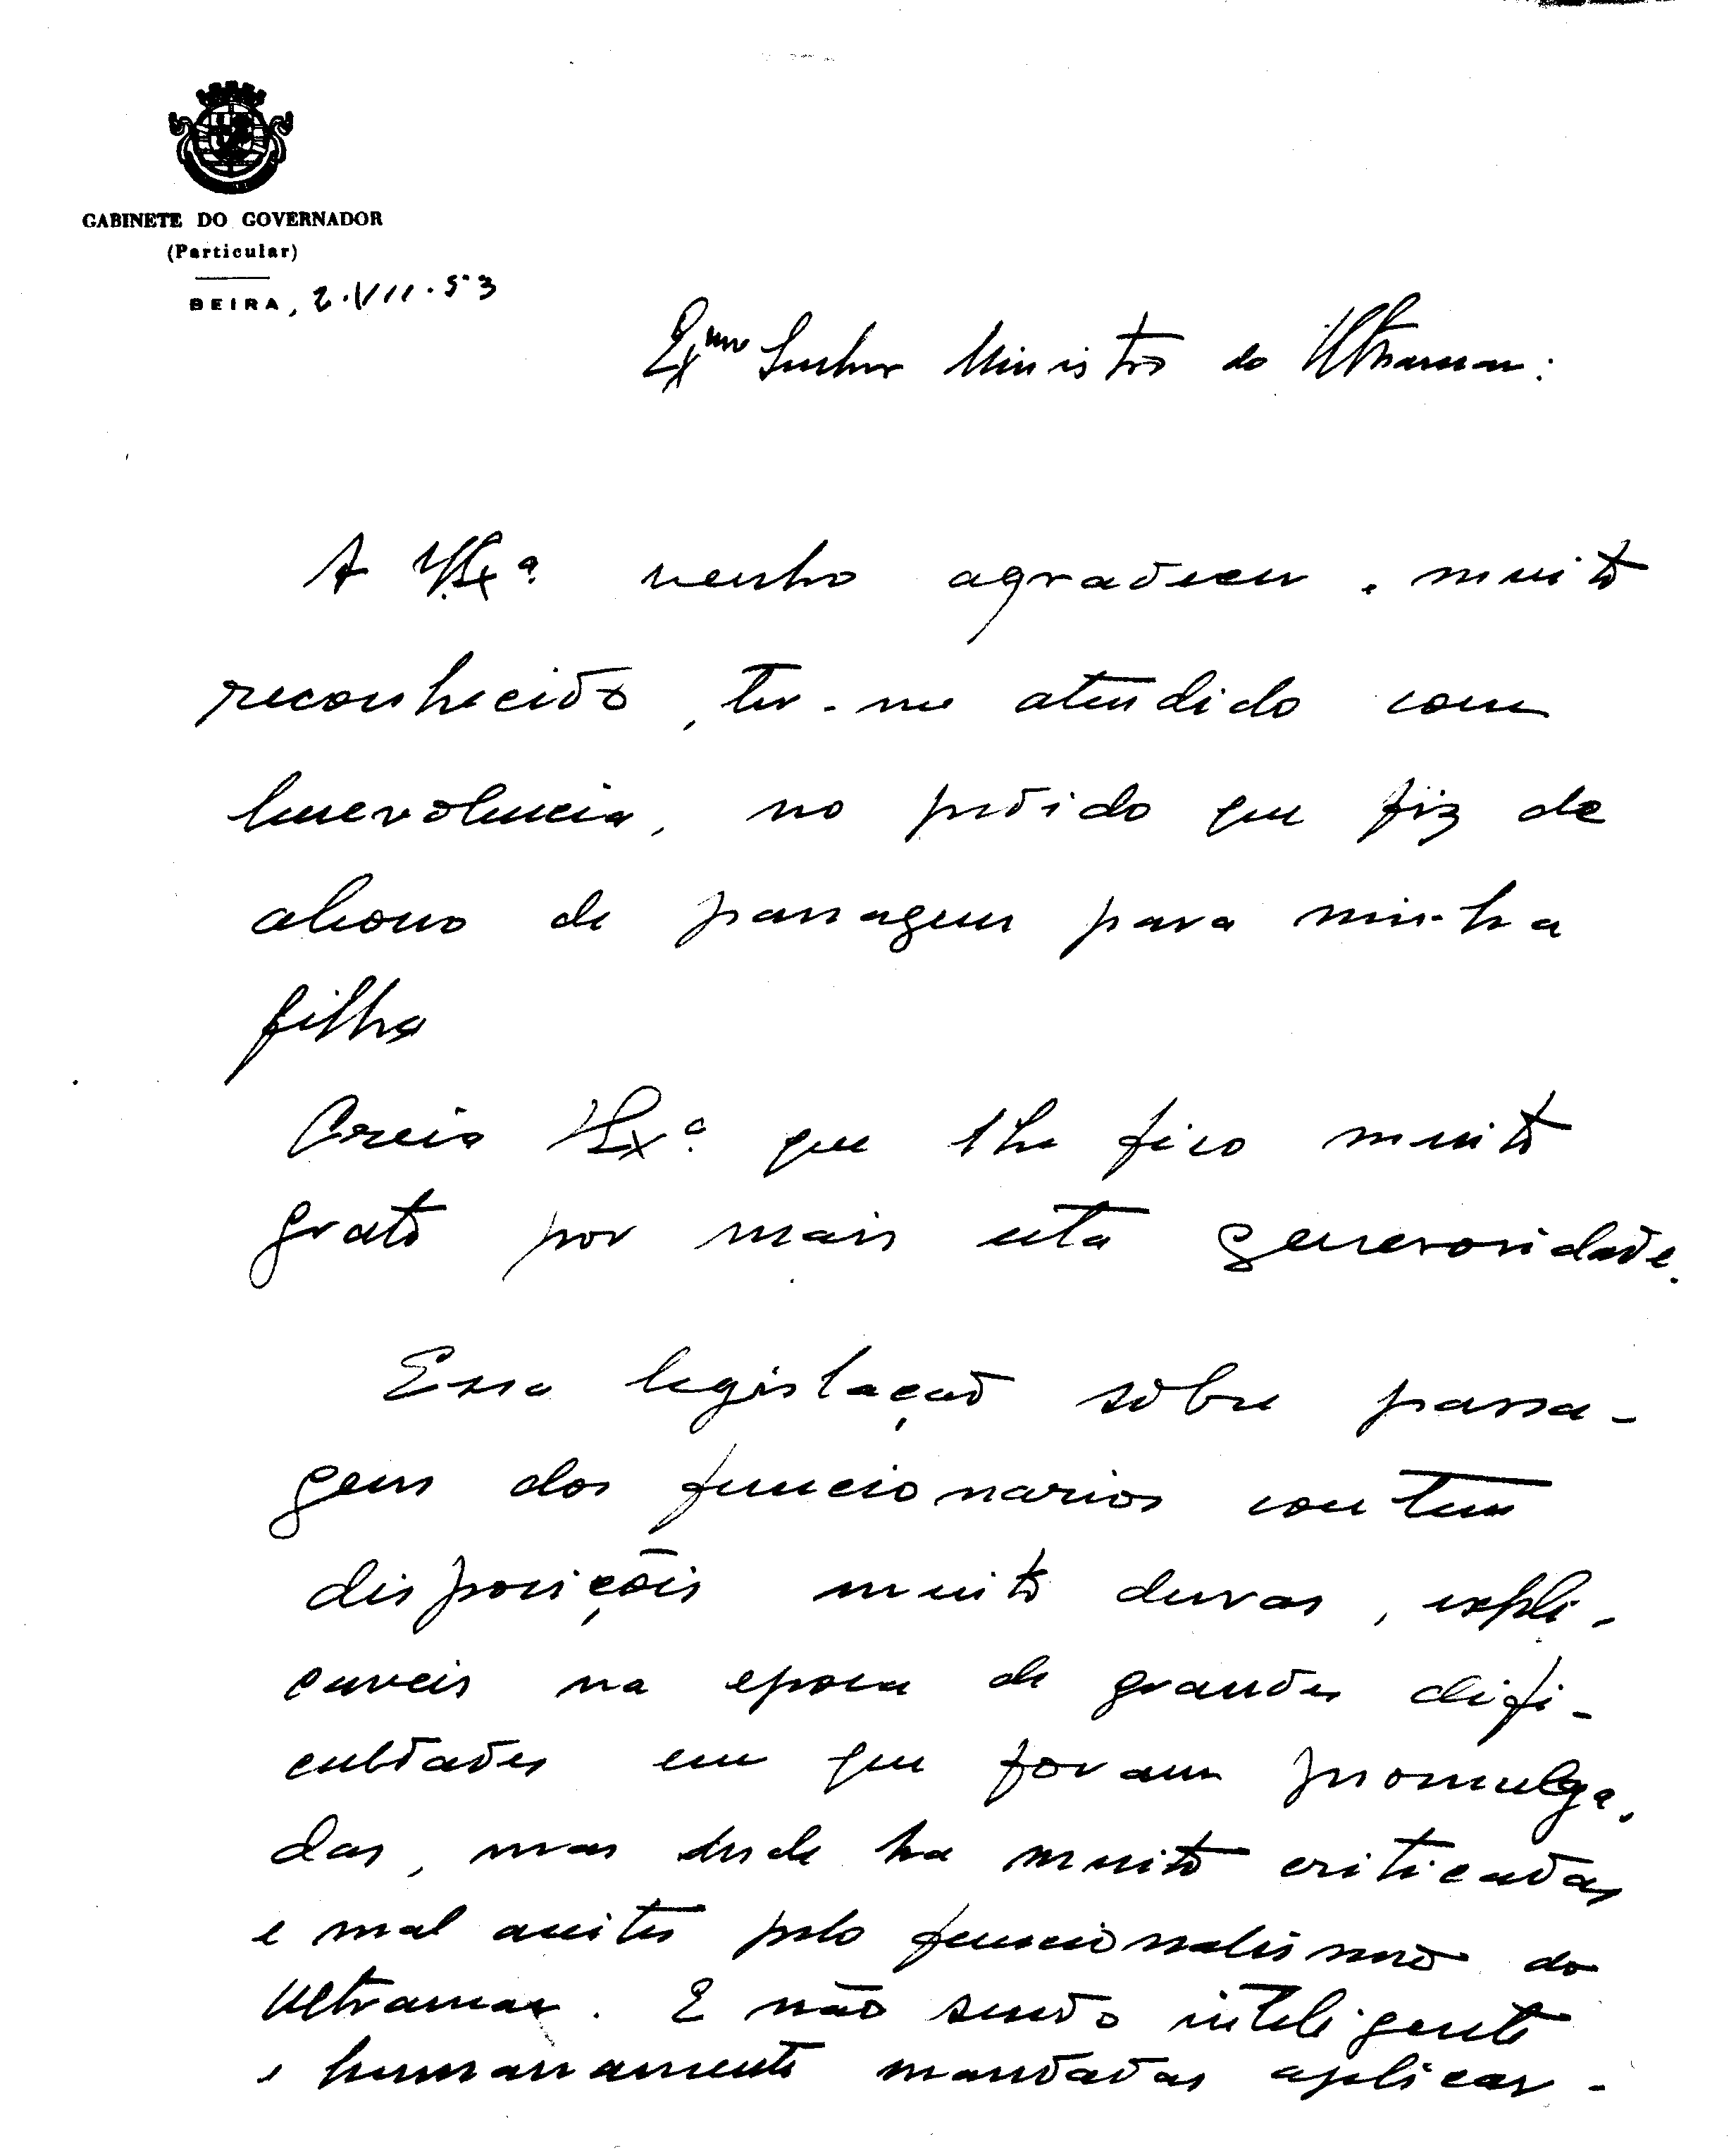 GABINETE DO GOVERNADOR
(Particular)
BEIRA, 2.VII.53
Exmo Senhor Ministro do Ultramar:
A V.Exª. venho agradecer, muito
reconhecido, ter-me atendido com
benevolencia, no pedido que fiz de
abono de passagem para minha
filha
Creia V.Exª. que lhe fico muito
grato por mais esta generosidade.
Essa legislação sôbre passa-
gens dos funcionarios contem
disposições muito duras, expli-
caveis na epoca de grandes difi-
culdades em que foram promulga-
das, mas desde ha muito criticadas
e mal aceites pelo funcionalismo do
Ultramar. E não sendo inteligente
e humanamente mandadas aplicar-